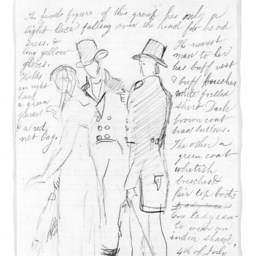 The female figure of this group has only a
light lace falling over the head for head
dress &
long yellow
gloves.
Holds
in right
hand
a green
& a red
net bag.
The nearest
man to her
has buff vest
& buff breeches
white frilled
shirt Dark
brown coat
brass buttons.
The other a
green coat
whitish
breeches &
fair top boots
One lady
to wear an
india shawl
4th of July